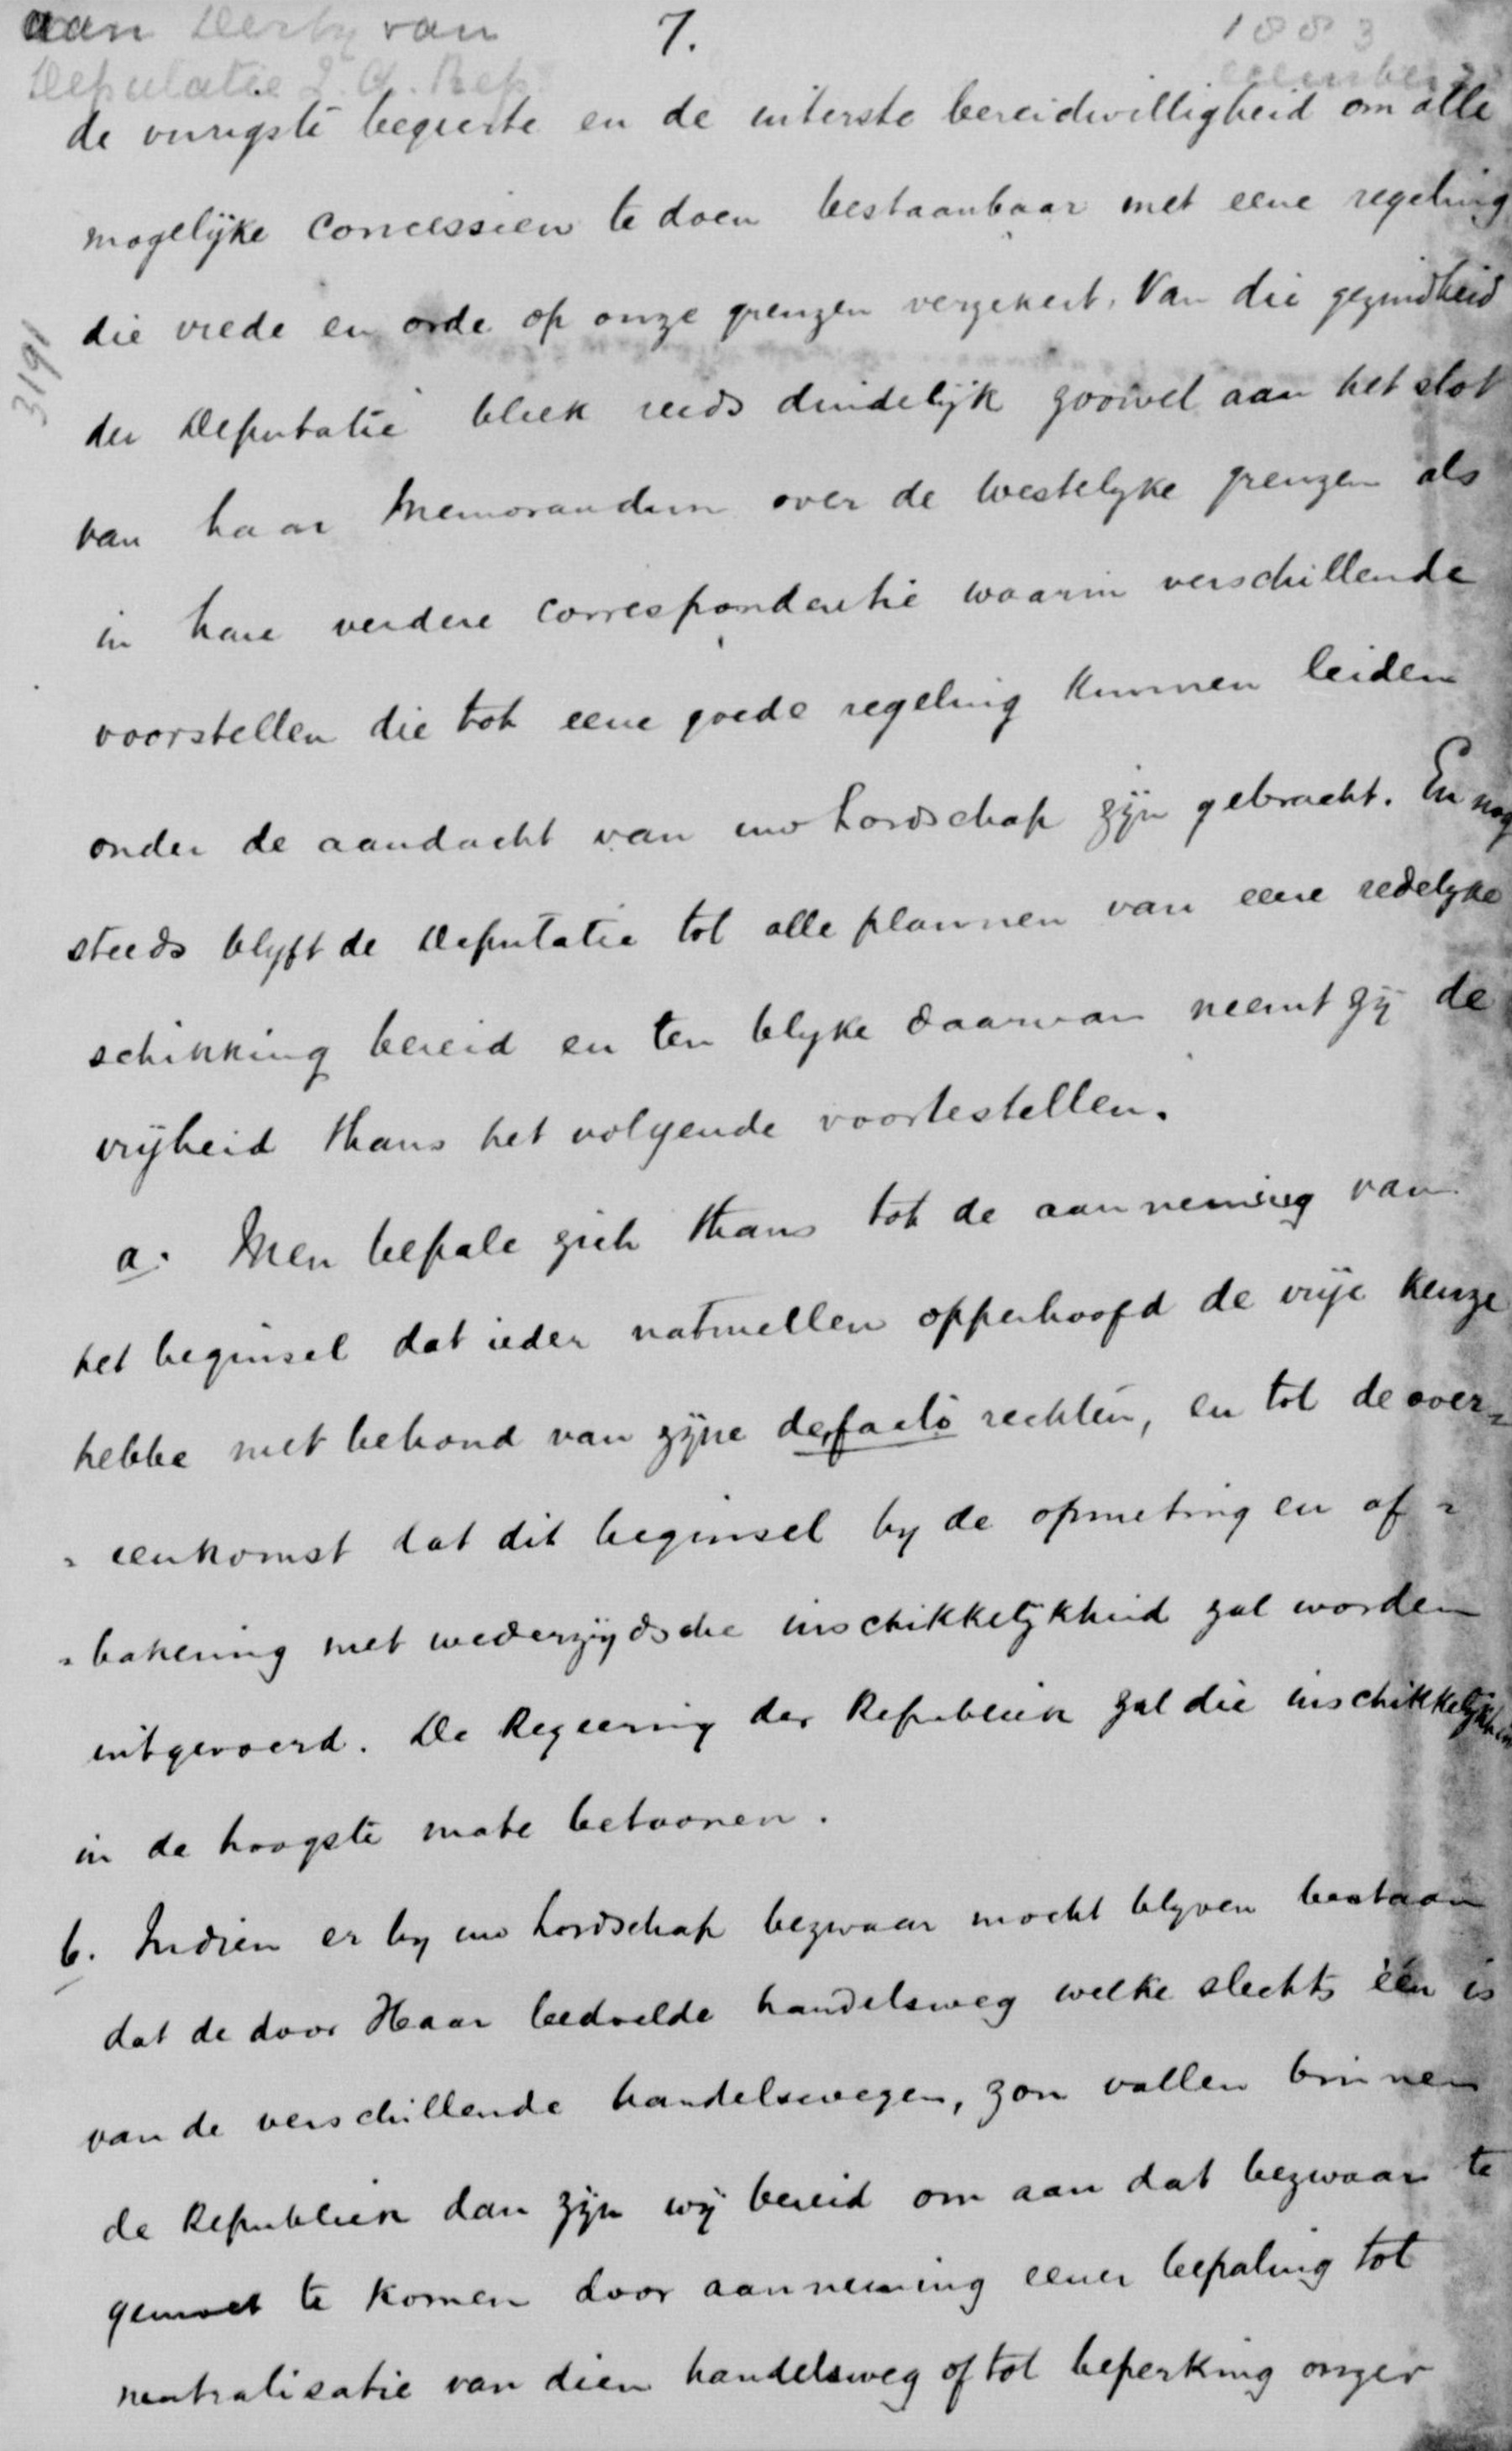 aan Derby van
7.
1883
Deputatie Z. A. Rep.
de vurigste begeerte en de uiterste bereidwilligheid om alle
mogelijke concessien te doen bestaanbaar met eene regeling
die vrede en orde op onze grenzen verzekert. Van die gezindheid
3191
der Deputatie bleek reeds duidelijk zoowel aan het slot
van haar Memorandum over de Westelyke grenzen als
in hare verdere correspondentie waarin verschillende
voorstellen die tot eene goede regeling kunnen leiden
onder de aandacht van uw Lordschap zijn gebracht. En nog
steeds blyft de Deputatie tot alle plannen van eene redelyke
schikking bereid en ten blyke daarvan neemt zij de
vrijheid thans het volgende voortestellen.
a. Men bepale zich thans tot de aanneming van
het beginsel dat ieder naturellen opperhoofd de vrije keuze
hebbe met behoud van zijne de facto rechten, en tot de over=
= eenkomst dat dit beginsel by de opmeting en af =
= bakening met wederzijdsche inschikkelijkheid zal worden
uitgevoerd. De Regeering der Republiek zal die inschikkelijkheid
in de hoogste mate betoonen.
b. Indien er by uw Lordschap bezwaar mocht blyven bestaan
dat de door Haar bedoelde handelsweg welke slechts één is
van de verschillende handelswegen, zou vallen binnen
de Republiek dan zijn wij bereid om aan dat bezwaar te
gemoet te komen door aanneming eener bepaling tot
neutralisatie van dien handelsweg of tot beperking onzer